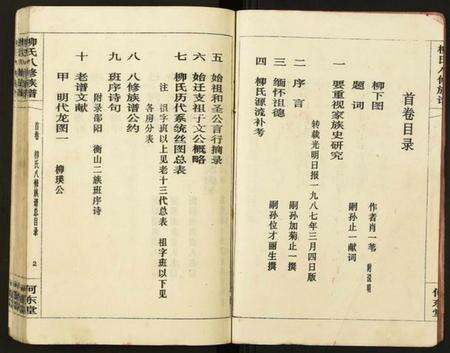 柳氏八修族谱
首卷目录
柳下图
作者肖一苇 附说明
题词
嗣孙止一献词
一 要重视家族史研究
转载光明日报一九八七年三月四日版
二 序言
嗣孙加菊止一撰
三 缅怀祖德
嗣孙位才丽生撰
四 柳氏源流补考
河东堂
五 始祖和圣公言行摘录
六 始迁支祖子文公概略
七 柳氏历代系统丝图总表
注 祖字班以上见老十三代总表 祖字班以下见
各房分表
八 八修族谱公约
九 班序诗句
附录邵阳 衡山二族班序诗
十 老谱文献
甲 明代龙图一 柳瑛公
柳氏八修族谱
首卷 柳氏八修族谱总目录
2
河东堂